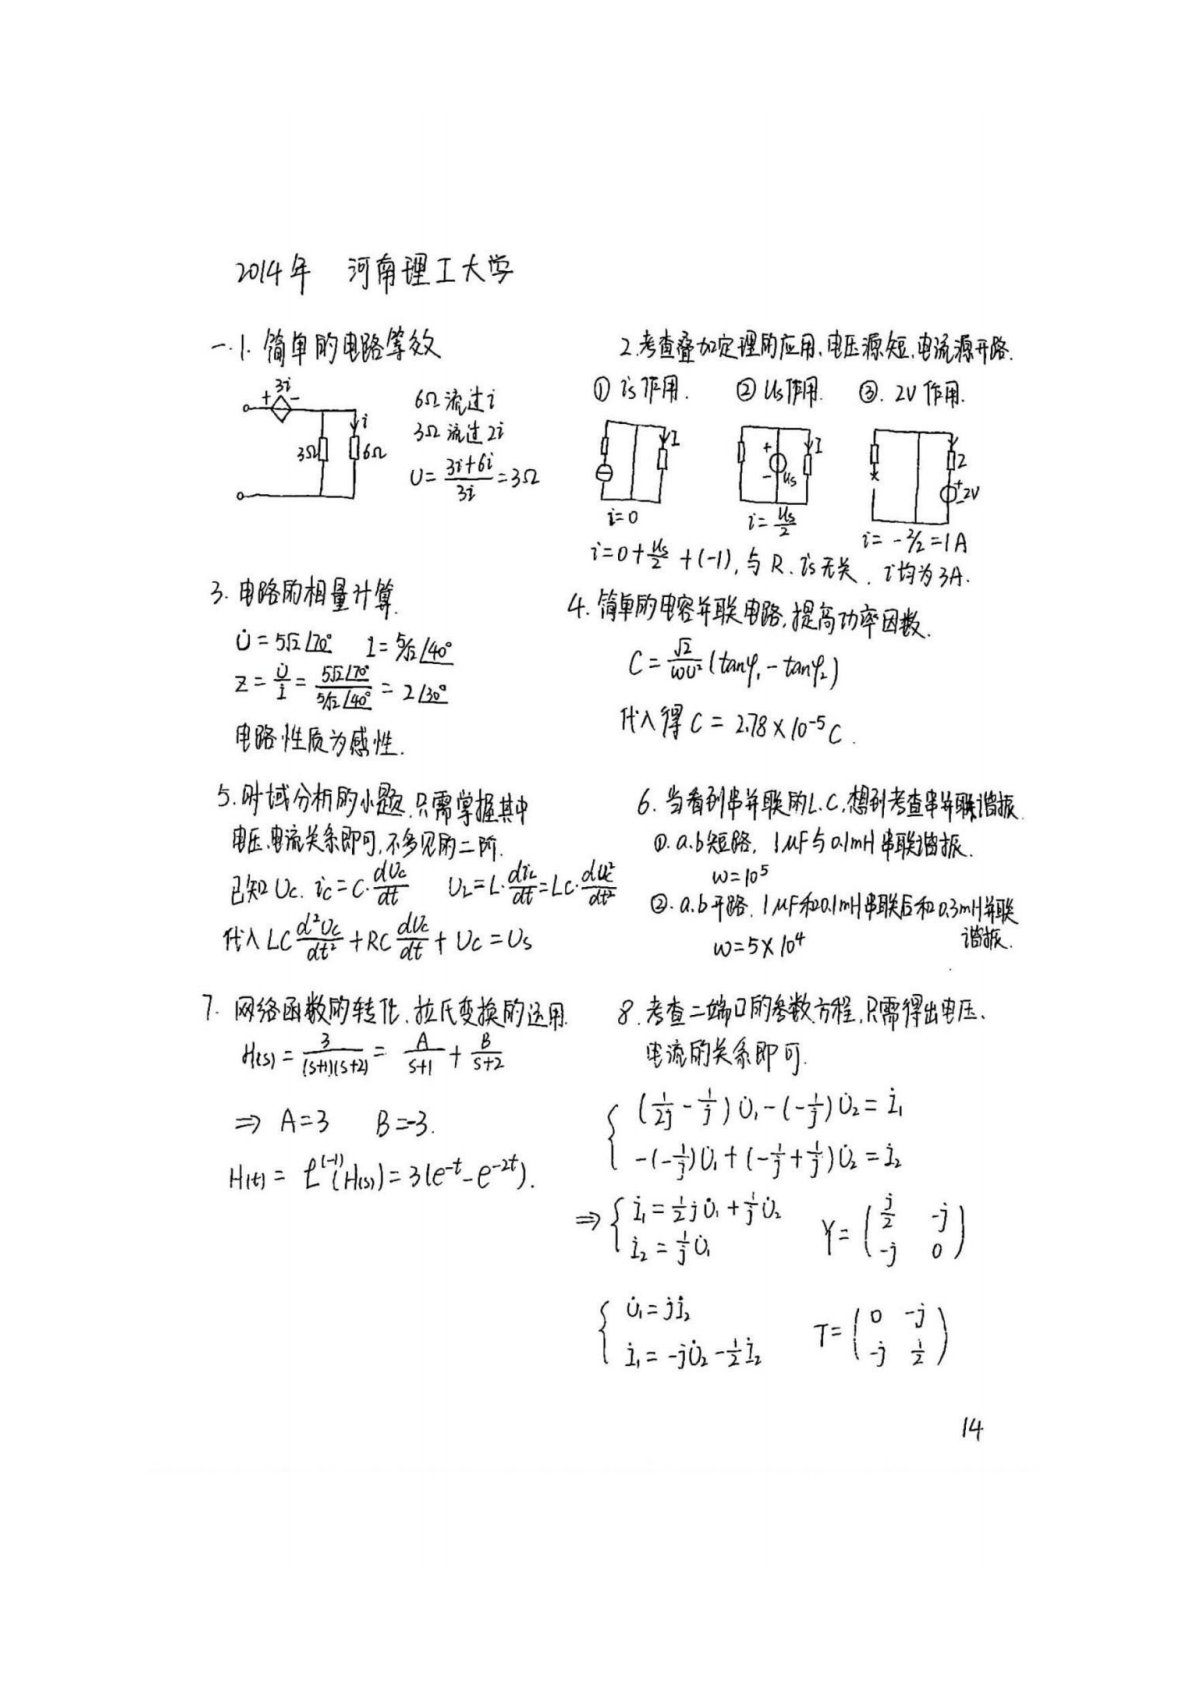 2014年 河南理工大学
一.1. 简单的电路等效
+ 3i -
i
3Ω 6Ω
6Ω 流过 i
3Ω 流过 2i
U = (3i+6i)/3i = 3Ω
2. 考查叠加定理的应用, 电压源短, 电流源开路.
① is作用. ② Us作用. ③. 2V 作用.
I
+ - Us I
2 + - 2V
i=0
i = Us/2
i = -2/2 = 1A
i = 0 + Us/2 + (-1), 与 R. is无关. i均为3A.
3. 电路的相量计算.
U̇ = 5√2∠70° İ = 5/√2∠40°
Z = U̇/İ = 5√2∠70°/(5/√2∠40°) = 2∠30°
电路性质为感性.
4. 简单的电容并联电路, 提高功率因数.
C = √2/(ωU²) (tanφ₁ - tanφ₂)
代入得 C = 2.78×10⁻⁵C.
5. 时域分析的小题, 只需掌握其中
电压、电流关系即可, 不多见的二阶.
已知 Uc. ic = C·dUc/dt UL = L·diL/dt = LC·dUc²/dt²
代入 LC d²Uc/dt² + RC dUc/dt + Uc = Us
6. 当看到串并联的L.C, 想到考查串并联谐振.
①. a.b短路, 1μF与0.1mH串联谐振.
ω=10⁵
②. a.b开路. 1μF和0.1mH串联后和0.3mH并联
谐振.
ω=5×10⁴
7. 网络函数的转化, 拉氏变换的运用.
H(s) = 3/((s+1)(s+2)) = A/(s+1) + B/(s+2)
⇒ A=3 B=-3.
H(t) = ℒ⁽⁻¹⁾(H(s)) = 3(e⁻ᵗ-e⁻²ᵗ).
8. 考查二端口的参数方程, 只需得出电压、
电流的关系即可.
{ (1/2j - 1/j)U̇₁ - (-1/j)U̇₂ = İ₁
-(-1/j)U̇₁ + (-1/j + 1/j)U̇₂ = İ₂
⇒ { İ₁ = 1/2 jU̇₁ + 1/j U̇₂
İ₂ = 1/j U̇₁
Y = ( j/2 -j
-j 0 )
{ U̇₁ = jİ₂
İ₁ = -jU̇₂ - 1/2 İ₂
T = ( 0 -j
-j 1/2 )
14